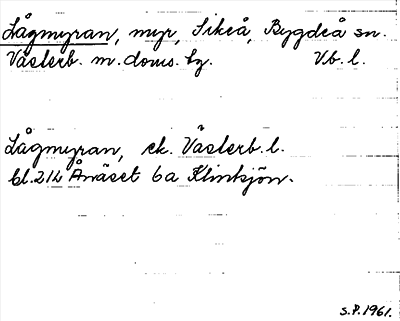 Lågmyran, myr, Sikeå, Bygdeå sn.
Västerb. m. doms. hg. Vb. l.
Lågmyran, ek. Västerb. l.
bl. 214 Ånäset 6a Klintsjön.
S.P. 1961.